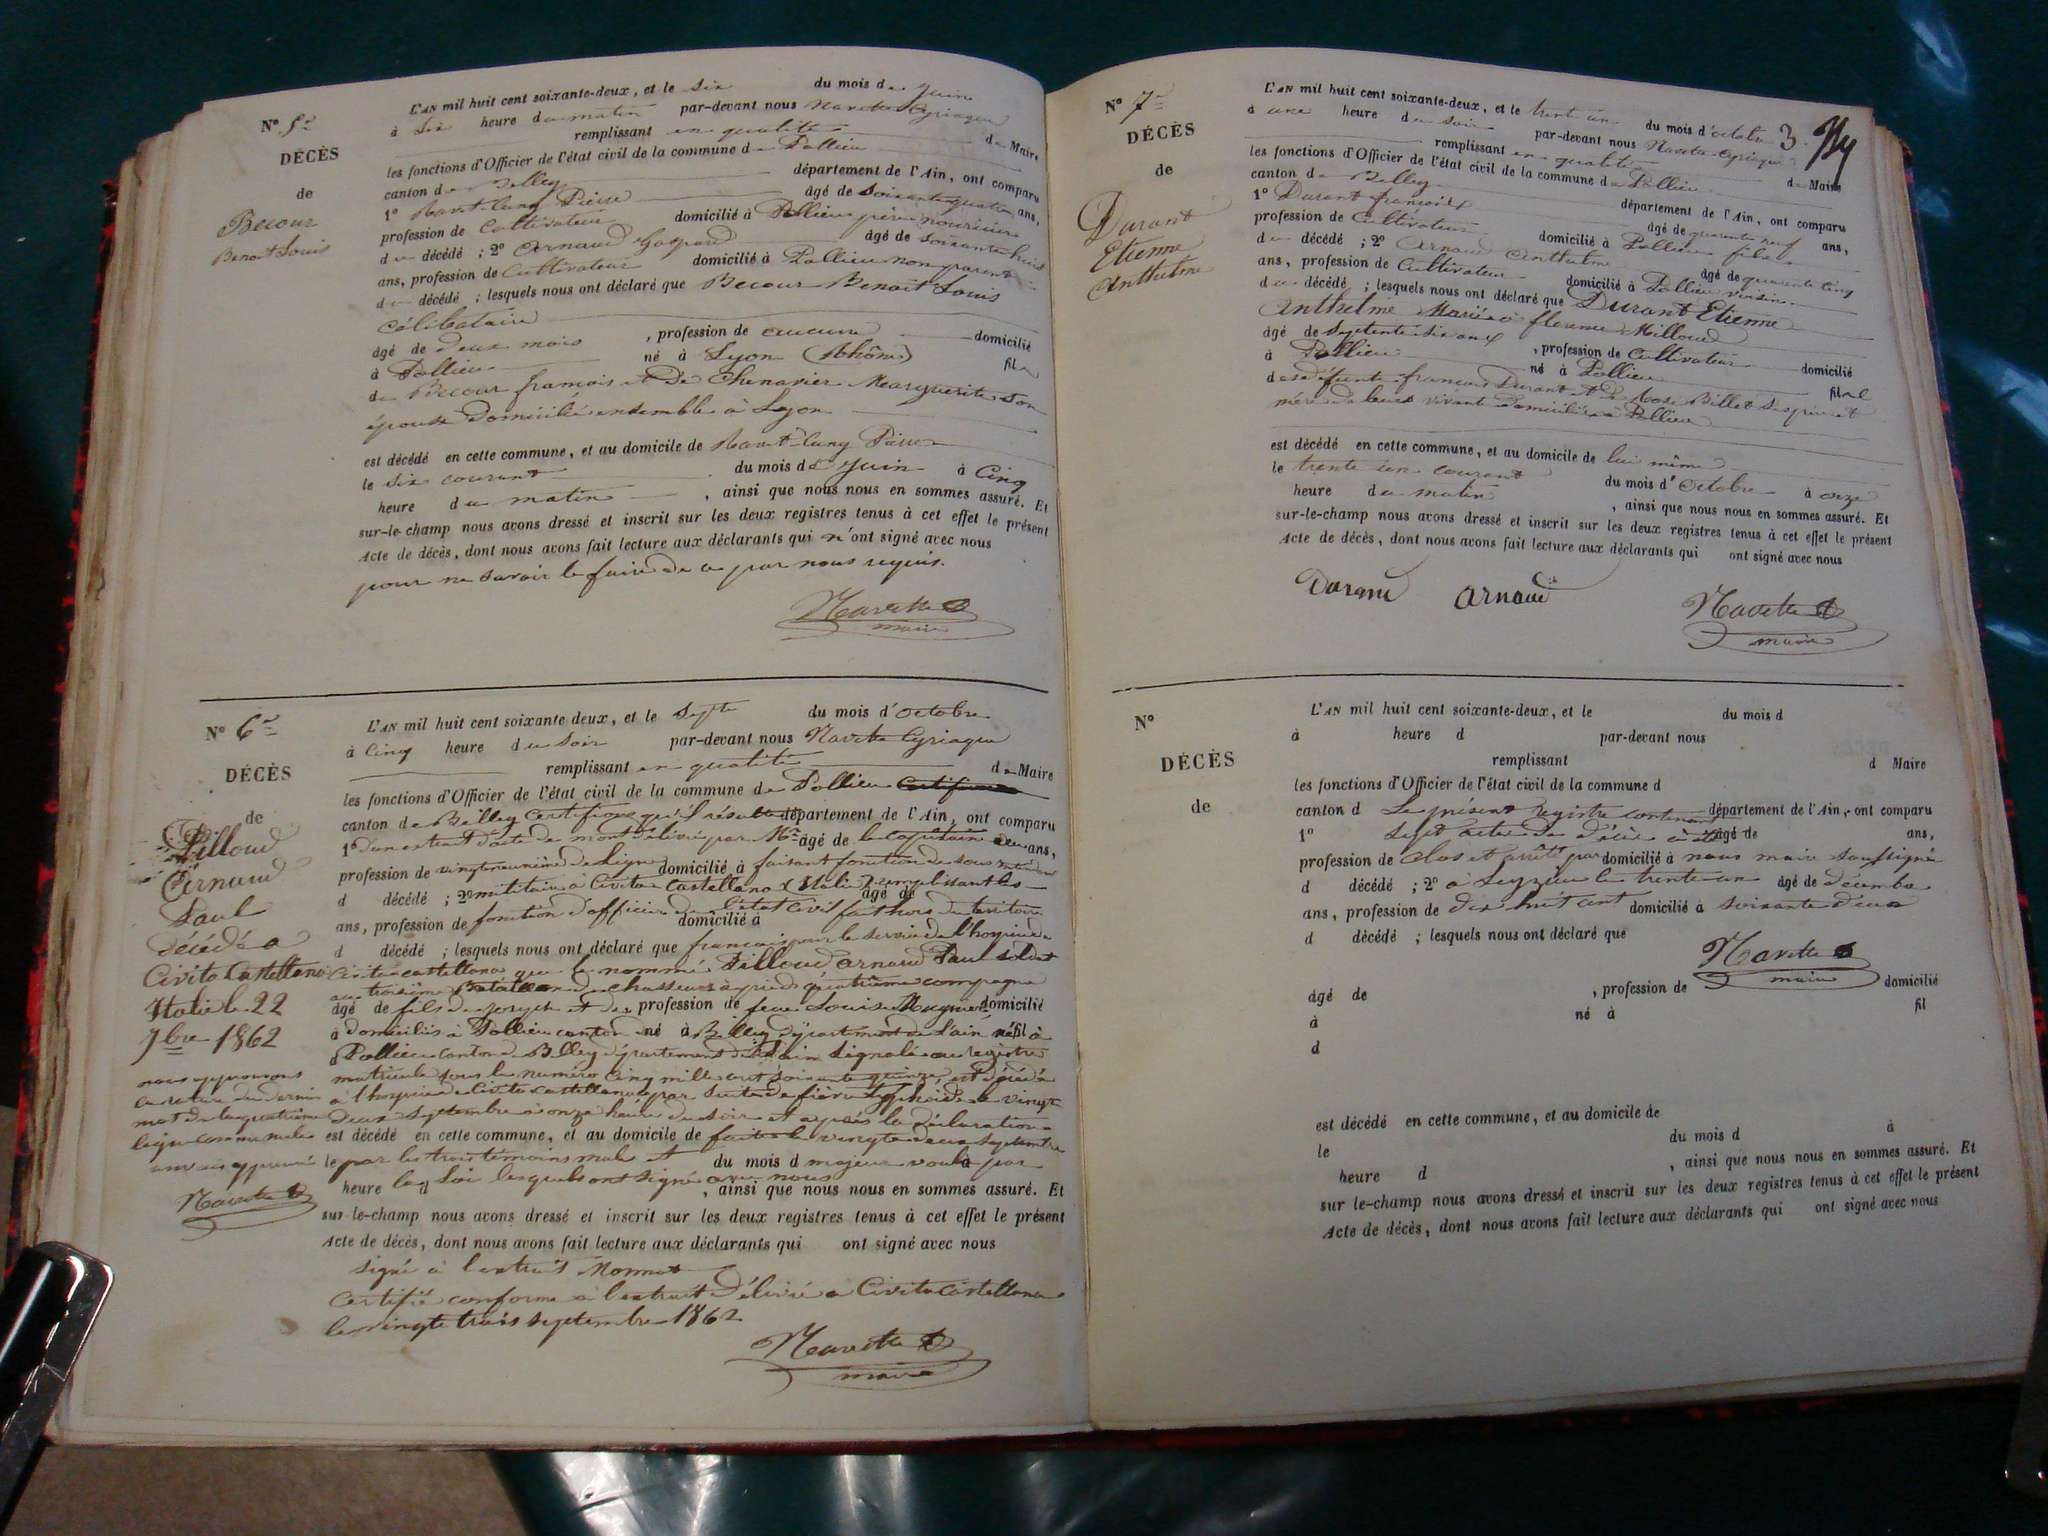 N° 5e
DÉCÈS
de
Becour
Benoit Louis
L'AN mil huit cent soixante-deux, et le six du mois de juin
à six heure du matin par-devant nous Navette Cyriaque
remplissant en qualité de Maire
les fonctions d'Officier de l'état civil de la commune de Pollieu
canton de Belley département de l'Ain, ont comparu
1° Pierre âgé de soixante quatre ans,
profession de Cultivateur domicilié à Pollieu père nouricier
du décédé ; 2° Arnaud Gaspard âgé de soixante huit
ans, profession de Cultivateur domicilié à Pollieu non parent
du décédé ; lesquels nous ont déclaré que Becour Benoit Louis
Célibataire
âgé de deux mois , profession de aucune domicilié
à Pollieu né à Lyon (Rhône) fils
de Becour framois et De Chenavier Marguerite son
épouse Domiciliés ensemble à Lyon
est décédé en cette commune, et au domicile de Pierre
le six courant du mois de juin à Cinq
heure du matin , ainsi que nous nous en sommes assuré. Et
sur-le-champ nous avons dressé et inscrit sur les deux registres tenus à cet effet le présent
Acte de décès, dont nous avons fait lecture aux déclarants qui n'ont signé avec nous
pour ne savoir le faire de ce par nous requis.
Navette
maire
N° 6e
DÉCÈS
de
Pilloud
Arnaud
Paul
décédé a
Civita Castellana
Italie le 22
7bre 1862
nous approuvons
la rature du dernier
mot de la quatrième
ligne
approuvé
Navette
L'AN mil huit cent soixante deux, et le Septe du mois d'octobre
à Cinq heure du soir par-devant nous Navette Cyriaque
remplissant en qualité de Maire
les fonctions d'Officier de l'état civil de la commune de Pollieu
canton de Belley Certifions qu'il résulte département de l'Ain, ont comparu
1° d'un extrait d'acte de mort délivré par Mr âgé de le Capitaine au ans,
profession de vingt et unième de ligne domicilié à faisant fonction de sous intendant
d décédé ; 2° militaire à Civita Castellana (Italie) remplissant les âgé de
ans, profession de fonction d'officier de l'état civil fait hors du territoire domicilié à
d décédé ; lesquels nous ont déclaré que français pour le service de l'hospice de
Civita castellana que le nommé Pilloud arnaud Paul soldat
au troisième Bataillon de chasseurs à pieds quatrième compagnie
âgé de fils de joseph et de , profession de feue Louise Mugnier domicilié
à domiciliés à Pollieu canton né à Belley Département de l'ain né fil à
Pollieu canton de Belley département de l'ain signalé au registre
matricule sous le numéro Cinq mille cent soixante quinze, est décédé
à l'hospice de Civita castellana par suite de fièvre typhoïde le vingt
deux septembre à onze heure du soir et après la déclaration
est décédé en cette commune, et au domicile de faite le vingte deux septembre
le par les trois témoins male et du mois d majeur voulu à par
heure la d Loi lesquels ont signé avec nous , ainsi que nous nous en sommes assuré. Et
sur-le-champ nous avons dressé et inscrit sur les deux registres tenus à cet effet le présent
Acte de décès, dont nous avons fait lecture aux déclarants qui ont signé avec nous
signé à l'extrait Monnet
Certifié conforme à l'extrait Délivré a Civita Castellana
le vingte trois septembre 1862
Navette
maire
N° 7e
DÉCÈS
de
Durant
Etienne
Anthelme
3
L'AN mil huit cent soixante-deux, et le trente un du mois d'octobre
à une heure du soir par-devant nous Navette Cyriaque
remplissant en qualité de Maire
les fonctions d'Officier de l'état civil de la commune de Pollieu
canton de Belley département de l'Ain, ont comparu
1° Durant françois âgé de quarante neuf ans,
profession de Cultivateur domicilié à Pollieu fils
du décédé ; 2° Arnaud Anthelme âgé de quarante cinq
ans, profession de Cultivateur domicilié à Pollieu voisin
du décédé ; lesquels nous ont déclaré que Durant Etienne
Anthelme Marié à florence Milloud
âgé de Septente six ans , profession de Cultivateur domicilié
à Pollieu né à Pollieu fils
de défunte françois Durant et de Rose Billet ses père et
mère de leurs vivant domiciliés à Pollieu
est décédé en cette commune, et au domicile de lui même
le trente un courant du mois d'octobre à onze
heure du matin , ainsi que nous nous en sommes assuré. Et
sur-le-champ nous avons dressé et inscrit sur les deux registres tenus à cet effet le présent
Acte de décès, dont nous avons fait lecture aux déclarants qui ont signé avec nous
Durand Arnaud Navette
maire
N°
DÉCÈS
de
L'AN mil huit cent soixante-deux, et le du mois d
à heure d par-devant nous
remplissant d Maire
les fonctions d'Officier de l'état civil de la commune d
canton d Le présent registre contenant département de l'Ain, ont comparu
1° Sept actes de décès a été âgé de ans,
profession de Clos et arrêté par domicilié à nous maire soussigné
d décédé ; 2° à le trente-un âgé de décembre
ans, profession de dix huit cent domicilié à soixante deux
d décédé ; lesquels nous ont déclaré que
Navette
maire
âgé de , profession de domicilié
à né à fil
d
est décédé en cette commune, et au domicile de
le du mois d à
heure d , ainsi que nous nous en sommes assuré. Et
sur le-champ nous avons dressé et inscrit sur les deux registres tenus à cet effet le présent
Acte de décès, dont nous avons fait lecture aux déclarants qui ont signé avec nous